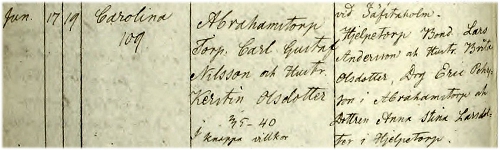 Jun. 17 19 Carolina
109
Abrahamstorp
Torp. Carl Gustaf
Nilsson och Hustr.
Kerstin Olsdotter
35-40
I knappa villkor
vid Säfstaholm.
Hjelpetorp Bond. Lars
Anderson och Hustr. Britta
Olsdotter, Drg Eric Pehrs
son i Abrahamstorp och
Dottren Anna Stina Larsdot
ter i Hjelpetorp.